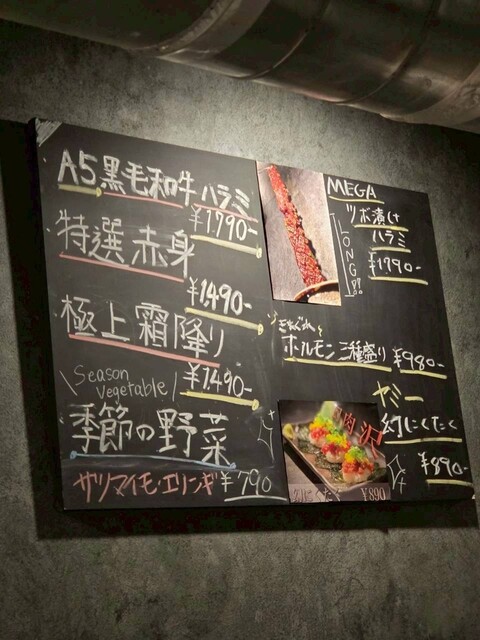 A5黒毛和牛ハラミ
¥1,790-
特選赤身
¥1,490-
極上霜降り
¥1,490-
Season
Vegetable
季節の野菜
サツマイモ・エリンギ ¥790
MEGA
ツボ漬け
ハラミ
LONG!!
¥1790-
ホルモン三種盛り ¥980-
ヤミー
幻にくたく
¥890-
¥890